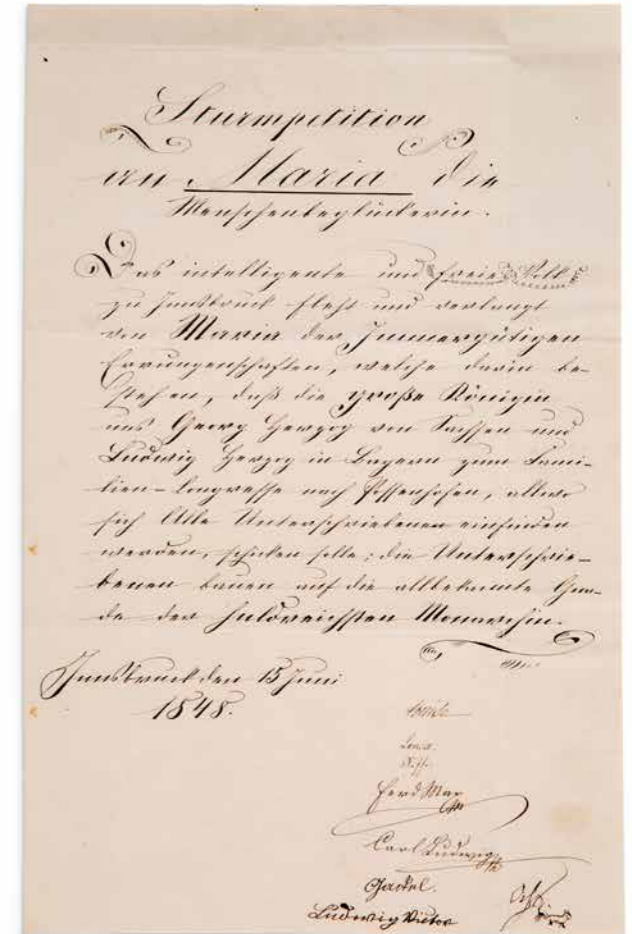 Sturmpetition
an Maria die
Menschenbeglückerin.
Das intelligente und freie Volk
zu Innsbruck fleht und verlangt
von Maria der Immergütigen
Errungenschaften, welche darin be-
stehen, daß die große Königin
uns Georg Herzog von Sachsen und
Ludwig Herzog in Bayern zum Fami-
lien-Congresse nach Possenhofen, allwo
sich Alle Unterschriebenen einfinden
werden, schicken solle; die Unterschrie-
benen bauen auf die allbekannte Gna-
de der huldreichsten Monarchin.
Innsbruck den 15 Juni
1848.
Ferd Max
Carl Ludwig
Gackel.
Ludwig Victor